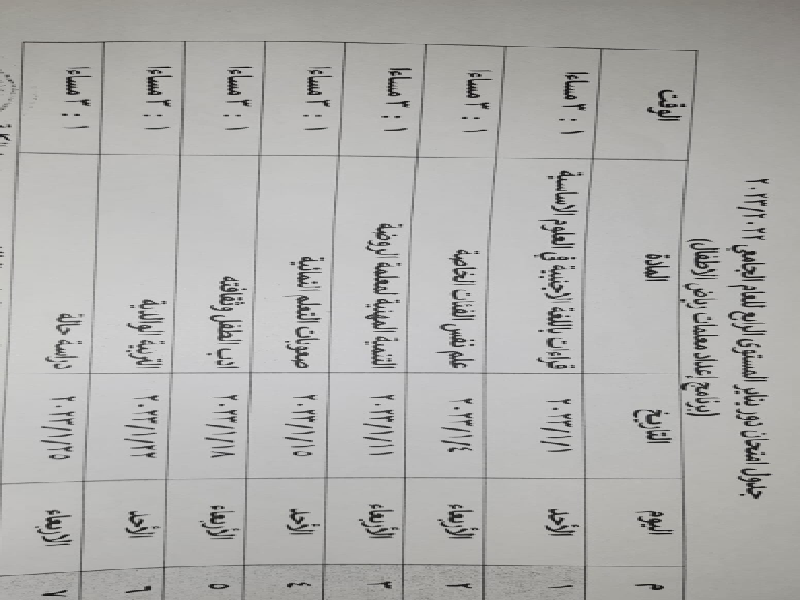 جدول امتحان دور يناير المستوى الرابع للعام الجامعي ٢٠٢٣/٢٠٢٢
(برنامج إعداد معلمات رياض الأطفال)
م اليوم التاريخ المادة الوقت
١ الأحد ٢٠٢٣/١/١ قراءات باللغة الاجنبية في العلوم الاساسية ١ : ٣ مساءا
٢ الأربعاء ٢٠٢٣/١/٤ علم نفس الفئات الخاصة ١ : ٣ مساءا
٣ الأربعاء ٢٠٢٣/١/١١ التنمية المهنية لمعلمة الروضة ١ : ٣ مساءا
٤ الأحد ٢٠٢٣/١/١٥ صعوبات التعلم النمائية ١ : ٣ مساءا
٥ الأربعاء ٢٠٢٣/١/١٨ ادب الطفل وثقافته ١ : ٣ مساءا
٦ الأحد ٢٠٢٣/١/٢٢ التربية الوالدية ١ : ٣ مساءا
٧ الأربعاء ٢٠٢٣/١/٢٥ دراسة حالة ١ : ٣ مساءا